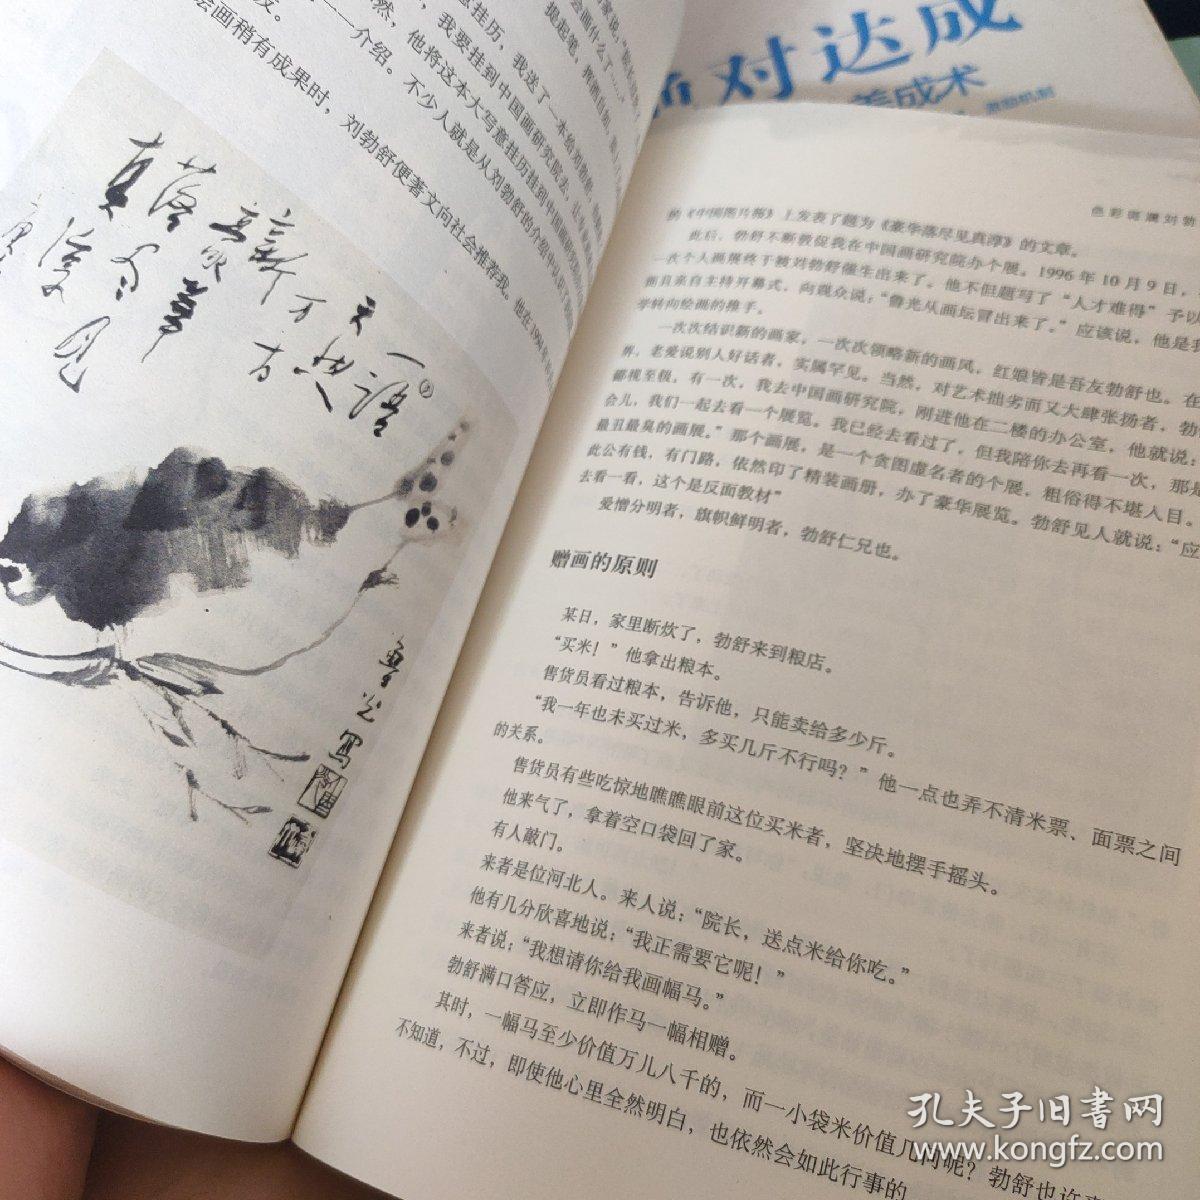 绘画稍有成果时，刘勃舒便著文向社会推荐我。他在1994年
然，他将这本大写意挂历挂到中国画研究院去，
一一介绍。不少人就是从刘勃舒的介绍中认识了
我要挂到中国画研究院
意挂历，我送了一本给刘勃舒
一语天然
万古新豪华
落尽见
真淳
鲁光写
对达成
养成术
激励机制
色彩斑斓刘勃
的《中国图片报》上发表了题为《豪华落尽见真淳》的文章。
此后，勃舒不断敦促我在中国画研究院办个展。1996年10月9日，
一次个人画展终于被刘勃舒催生出来了。他不但题写了“人才难得”予以
而且亲自主持开幕式，向观众说：“鲁光从画坛冒出来了。”应该说，他是我
学转向绘画的推手。
一次次结识新的画家，一次次领略新的画风，红娘皆是吾友勃舒也。在
界，老爱说别人好话者，实属罕见。当然，对艺术拙劣而又大肆张扬者，勃
鄙视至极，有一次，我去中国画研究院，刚进他在二楼的办公室，他就说：
会儿，我们一起去看一个展览。我已经去看过了，但我陪你去再看一次，那是
最丑最臭的画展。”那个画展，是一个贪图虚名者的个展，粗俗得不堪入目。
此公有钱，有门路，依然印了精装画册，办了豪华展览。勃舒见人就说：“应
去看一看，这个是反面教材”
爱憎分明者，旗帜鲜明者，勃舒仁兄也。
赠画的原则
某日，家里断炊了，勃舒来到粮店。
“买米！”他拿出粮本。
售货员看过粮本，告诉他，只能卖给多少斤。
“我一年也未买过米，多买几斤不行吗？”他一点也弄不清米票、面票之间
的关系。
售货员有些吃惊地瞧瞧眼前这位买米者，坚决地摆手摇头。
他来气了，拿着空口袋回了家。
有人敲门。
来者是位河北人。来人说：“院长，送点米给你吃。”
他有几分欣喜地说：“我正需要它呢！”
来者说：“我想请你给我画幅马。”
勃舒满口答应，立即作马一幅相赠。
其时，一幅马至少价值万儿八千的，而一小袋米价值几何呢？勃舒也许
不知道，不过，即使他心里全然明白，也依然会如此行事的
孔夫子旧书网
www.kongfz.com